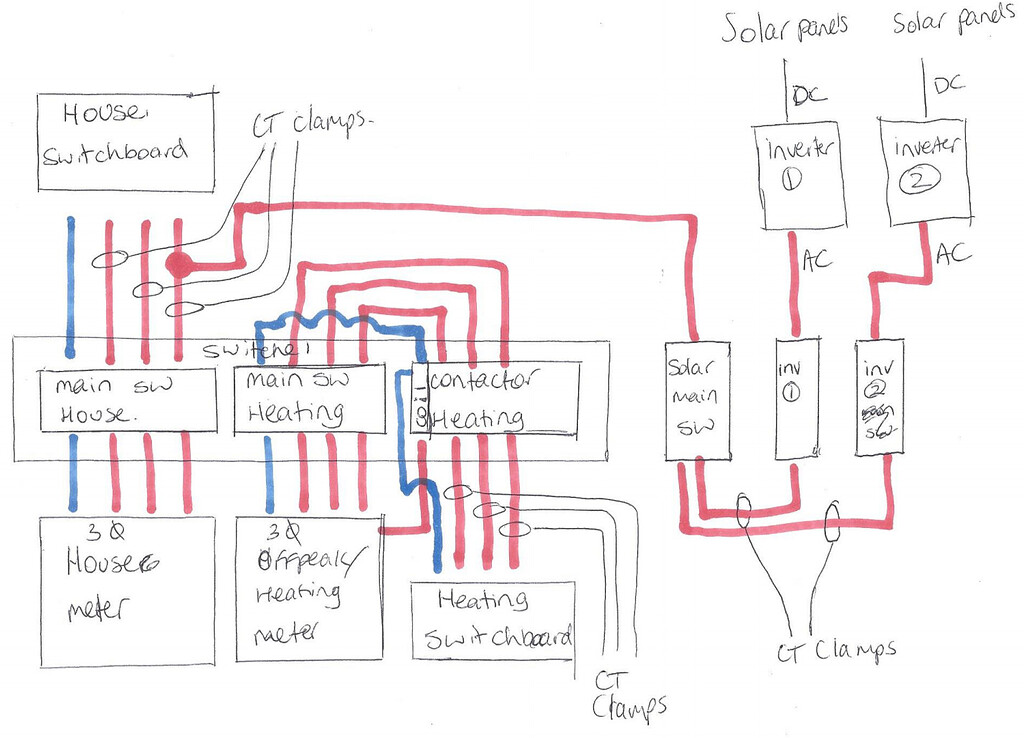 Solar panels
Solar panels
DC
DC
House.
Switchboard
CT clamps.
inverter
①
inverter
②
AC
AC
Switche
main sw
House.
main sw
Heating
contactor
Heating
Solar
main
SW
inv
①
inv
②
sw
3Ø
House
meter
3Ø
Offpeak/
Heating
meter
Heating
Switchboard
CT
Clamps
CT Clamps